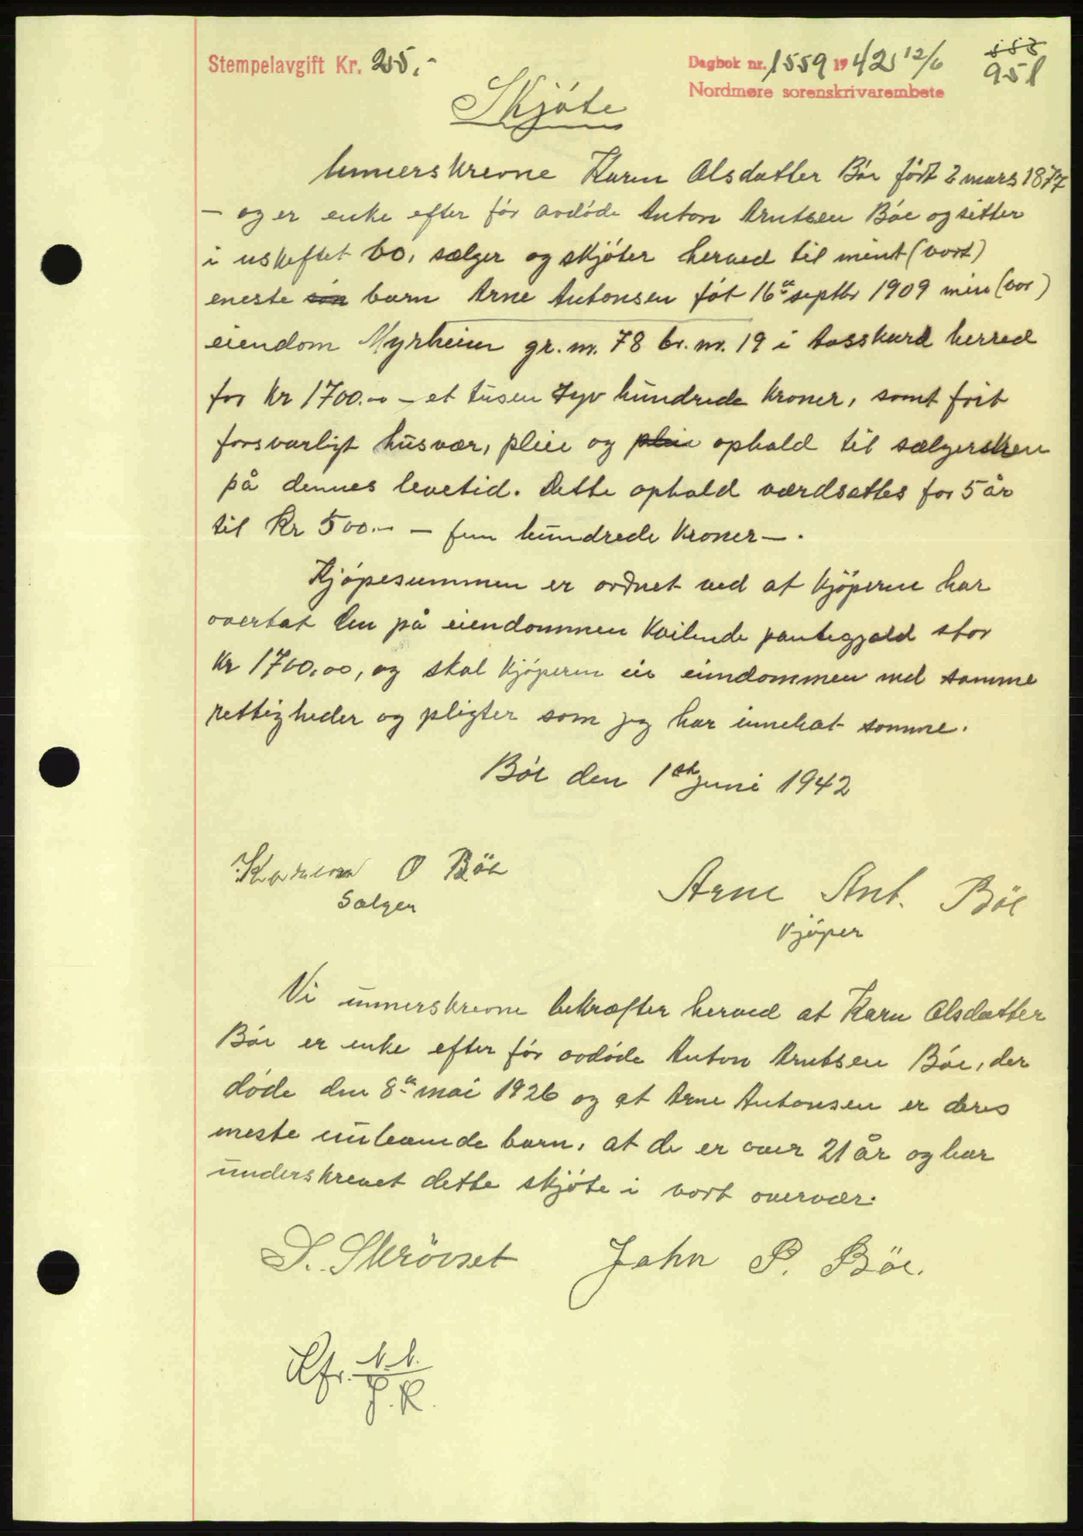 Stempelavgift Kr. 25,-
Dagbok nr. 1559 1942 12/6
Nordmøre sorenskrivarembete
951
Skjøte
Unnerskrevne Karen Olsdatter Bøe født 2 mars 1877
— og er enke efter før avdøde Anton Arntsen Bøe og sitter
i uskiftet bo, sælger og skjøter herved til mint (vort)
eneste søn barn Arne Antonsen føt 16de septbr 1909 min (vor)
eiendom Myrheim gr. nr. 78 br. nr. 19 i Aasskard herred
for kr 1700.00 — et tusen syv hundrede kroner, samt frit
forsvarligt husvær, pleie og pleie ophold til sælgersken
på dennes levetid. Dette ophold værdsættes for 5 år
til Kr 500.— — fem hundrede kroner —.
Kjøpesummen er ordnet ved at kjøperen har
overtat den på eiendommen hvilende pantegjæld stor
kr 1700,00, og skal kjøperen eie eiendommen med samme
rettigheder og pligter som jeg har innehat samme.
Bøe den 1ste juni 1942
Karen O Bøe
Sælger
Arne Ant. Bøe
kjøper
Vi unnerskrevne bekræfter herved at Karen Olsdatter
Bøe er enke efter før avdøde Anton Arntsen Bøe, der
døde den 8de mai 1926 og at Arne Antonsen er deres
eneste nulevende barn, at de er over 21 år og har
underskrevet dette skjøte i vort overvær.
S. Skrövset John P. Böe.
Kfr. N.N.
J.R.